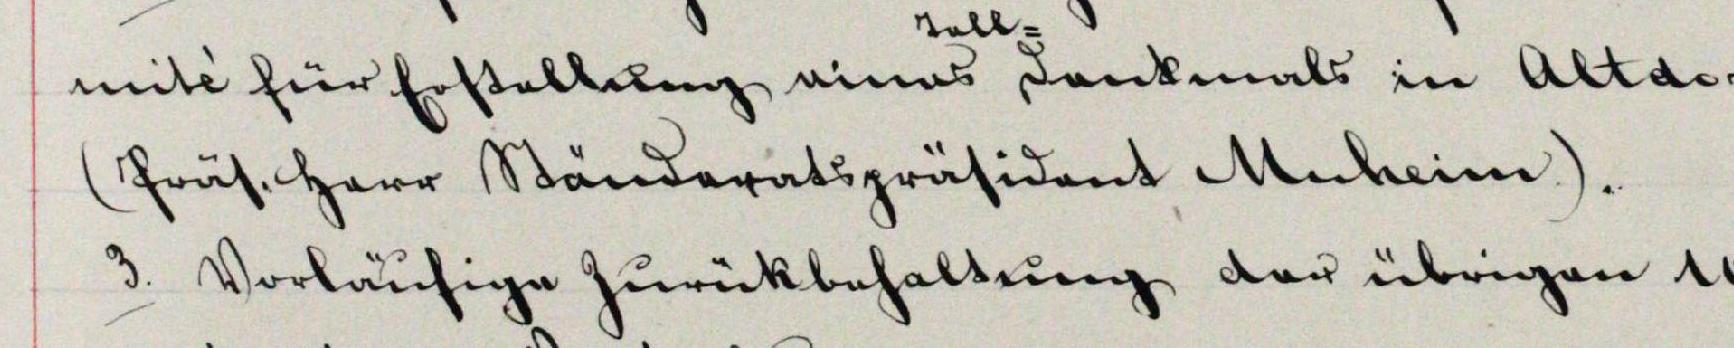 Tell=
mité für Erstellung eines Denkmals in Altdo
(Präs. Herr Ständeratspräsident Muheim).
3. Vorläufige Zurükbehaltung der übrigen